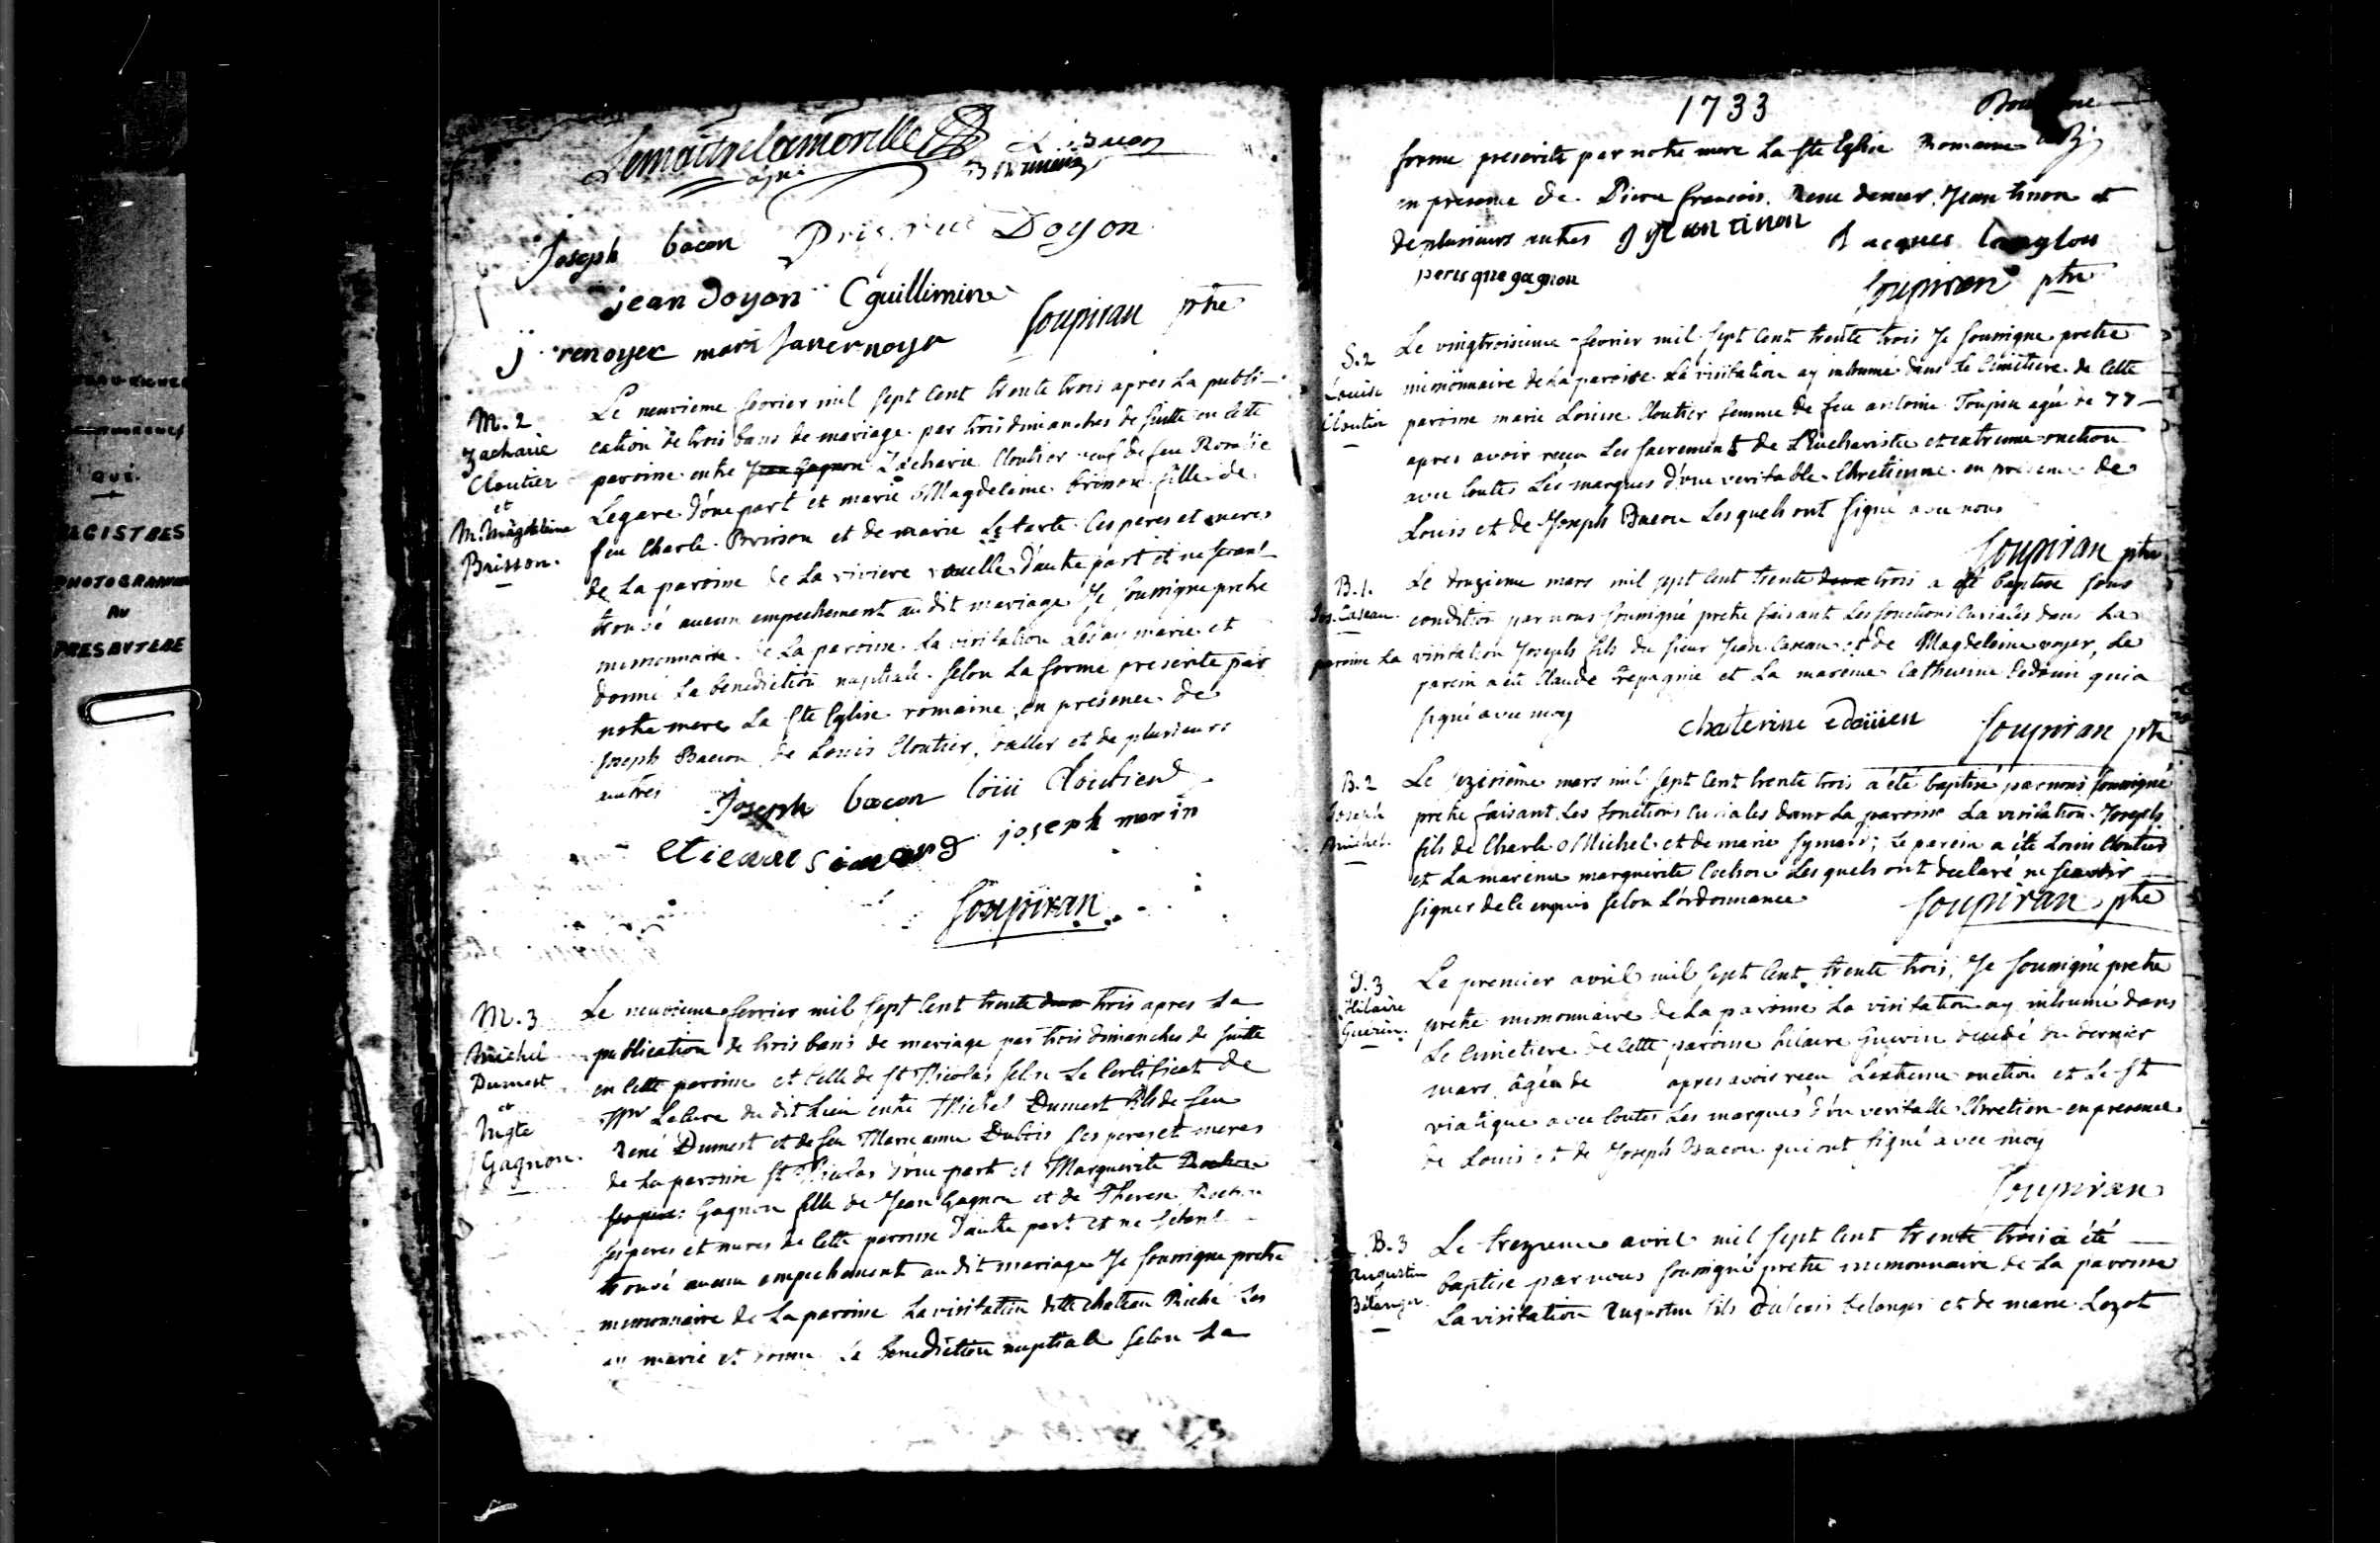 QUÉ.
REGISTRES
PHOTOGRAPHIÉS
AU
PRESBYTERE
Lemaitrelamorille
L. Bacon
Joseph bacon Doyon
jean Doyon Cguillimin
j renoyer
Soupiran ptre
M. 2
Zacharie
Cloutier
et
M. Magdeleine
Brisson.
Le neuvieme fevrier mil sept cent trente trois apres La publi-
cation de trois bans de mariage par trois dimanches de suitte en cette
paroisse entre Jean Gagnon Zacharie Cloutier veuf de feu
Legaré d'une part et marie Magdeleine brisson fille de
feu Charle Brisson et de marie Le tarte Ces peres et meres
de La paroisse de La riviere d'autre part et ne s'etant
trouvé aucun empechement au dit mariage Je soussigne pretre
missionnaire de La paroisse La visitation Les ay marie et
donné La benediction nuptiale selon La forme prescrite par
notre mere La Ste Eglise romaine en presence de
Joseph Bacon de Louis Cloutier, et de plusieurs
autres
Joseph bacon loüi Cloutier
etienne simard joseph morin
Soupiran
M. 3
Michel
Dumest
et
Mgte
Gagnon.
Le neuvieme fevrier mil sept cent trente deux trois apres La
publication de trois bans de mariage par trois dimanches de suitte
en cette paroisse et celle de St Nicolas selon Le Certificat de
Mr Lecure du dit Lieu entre Michel Dumest fils de feu
René Dumest et de feu Marie anne Dubois ses peres et meres
de La paroisse St Nicolas d'une part et Marguerite Rochon
ses peres Gagnon fille de Jean Gagnon et de Therese Rochon
ses peres et meres de cette paroisse d'autre part et ne s'etant
trouvé aucun empechement au dit mariage Je soussigne pretre
missionnaire de La paroisse La visitation ditte chateau Riché Les
ay marié et donné La benediction nuptiale selon La
1733
forme prescrite par notre mere La Ste Eglise Romaine
en presence de Pierre francois, Jean tinon et
de plusieurs autres Jean tinon Jacques langlou
gagnon
Soupiran ptre
S. 2
Louise
Cloutier
Le vingtroisieme fevrier mil sept cent trente trois Je soussigne pretre
missionnaire de La paroisse La visitation ay inhumé dans Le Cimetiere de cette
paroisse marie Louise Cloutier femme de feu antoine Toupin agée de 77
apres avoir receu Les sacrements de L'Eucharistie et extreme onction
avec toutes Les marques d'une veritable Chretienne en presence de
Louis et de Joseph Bacon Lesquels ont signé avec nous
Soupiran ptre
B. 1.
Jos. Caseau.
Le douzieme mars mil sept cent trente deux trois a eté baptisé sous
condition par nous soussigné pretre faisant Les fonctions Curiales dans La
paroisse La visitation Joseph fils du sieur Jean Caseau et de Magdeleine voyer, Le
parein a eté Claude Trepagnie et La mareine Catherine qui a
signé avec moy
Chaterine Soupiran ptre
B. 2
Joseph
Michel.
Le mars mil sept cent trente trois a été baptisé par nous soussigné
pretre faisant Les fonctions curiales dans La paroisse La visitation Joseph
fils de Charle Michel et de marie Symard; Le parein a été Louis Cloutier
et La mareine marguerite Cochon Lesquels ont declaré ne scavoir
signer de ce enquis selon L'ordonnance
Soupiran ptre
S. 3
Hilaire
Guerin.
Le premier avril mil sept cent trente trois, Je soussigné pretre
pretre missionnaire de La paroisse La visitation ay inhumé dans
Le Cimetiere de cette paroisse hilaire guerin decedé du dernier
mars âgée de apres avoir receu L'extreme onction et Le St
viatique avec toutes Les marques d'un veritable Chretien en presence
de Louis et de Joseph Bacon qui ont signé avec moy
Soupiran
B. 3
Augustin
Bélanger.
Le trezieme avril mil sept cent trente trois a été
baptisé par nous soussigné pretre missionnaire de La paroisse
La visitation Augustin fils belanger et de marie Lezot